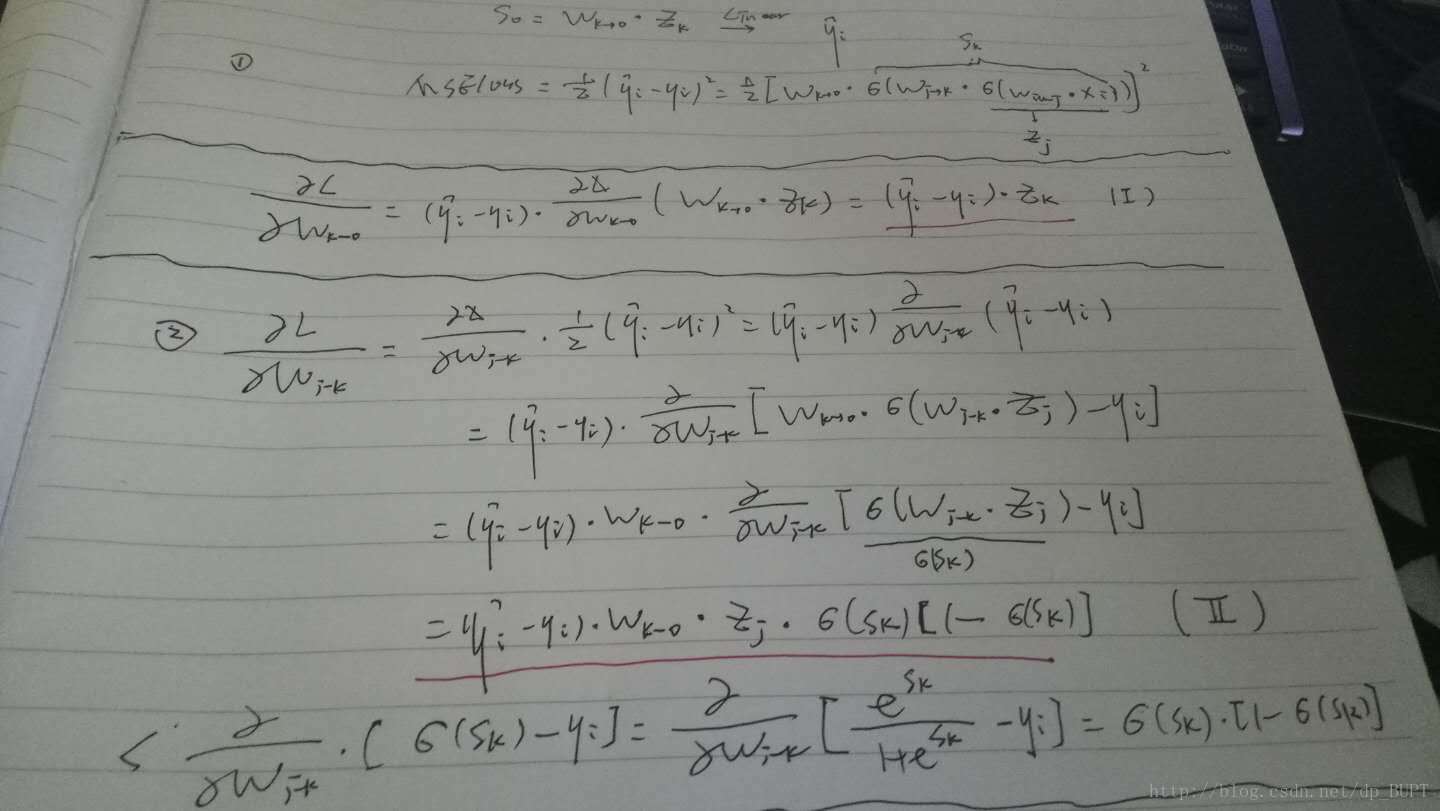 S₀ = W_{k→o} · Z_k \xrightarrow{Linear} ŷ_i
① MSEloss = 1/2 (ŷ_i − y_i)² = 1/2 [W_{k→o} · σ(W_{j→k} · σ(W_{in→j} · x_i))]²
S_k
Z_j
∂L/∂W_{k→o} = (ŷ_i − y_i) · ∂/∂W_{k→o} (W_{k→o} · Z_k) = (ŷ_i − y_i) · Z_k (I)
② ∂L/∂W_{j→k} = ∂/∂W_{j→k} · 1/2 (ŷ_i − y_i)² = (ŷ_i − y_i) ∂/∂W_{j→k} (ŷ_i − y_i)
= (ŷ_i − y_i) · ∂/∂W_{j→k} [W_{k→o} · σ(W_{j→k} · Z_j) − y_i]
= (ŷ_i − y_i) · W_{k→o} · ∂/∂W_{j→k} [σ(W_{j→k} · Z_j) − y_i]
σ(S_k)
= (ŷ_i − y_i) · W_{k→o} · Z_j · σ(S_k)[1 − σ(S_k)] (II)
∂/∂W_{j→k} · [σ(S_k) − y_i] = ∂/∂W_{j→k} [e^{S_k}/(1+e^{S_k}) − y_i] = σ(S_k) · [1 − σ(S_k)]
http://blog.csdn.net/dp_BUPT